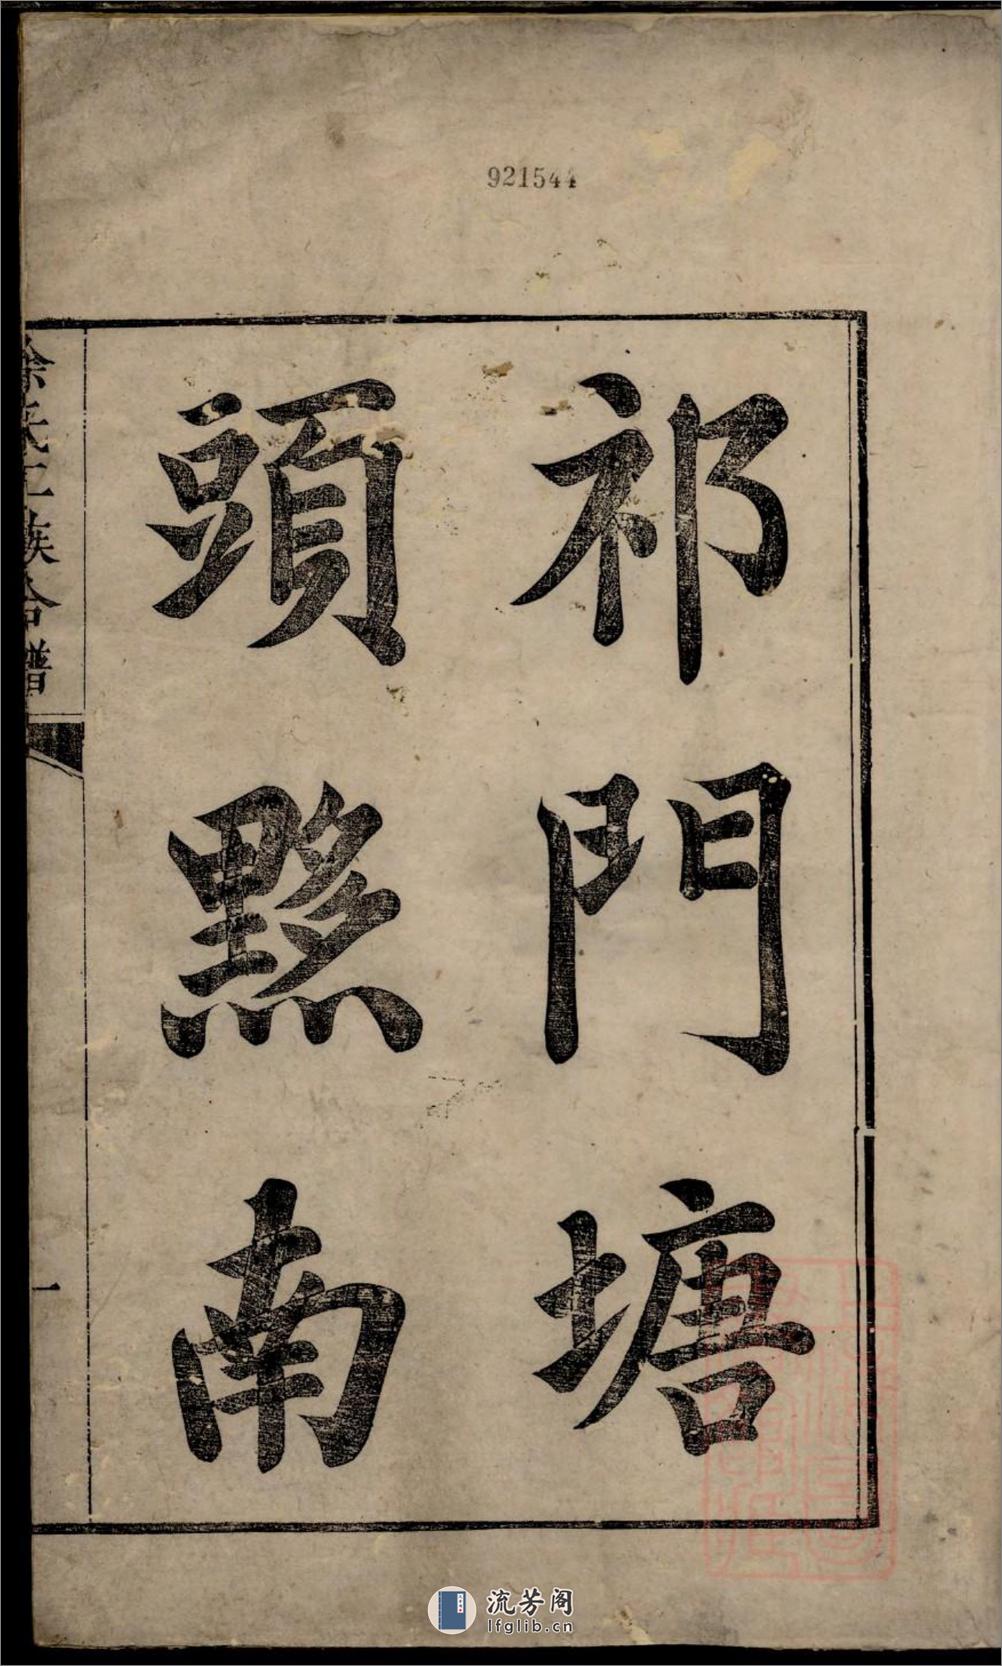 921544
祁門塘
頭黟南
徐氏三族合譜
一
流芳阁
lfglib.cn